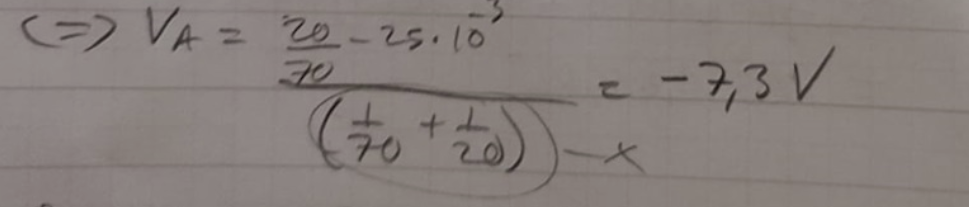 (=) V_A = (20/70 - 25·10^-3) / (1/70 + 1/20) - x = -7,3 V